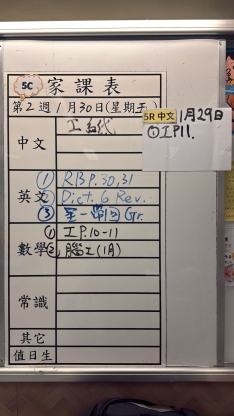 5C 家課表
第2週1月30日(星期五)
中文 工紙
英文 ① RBP.30,31
② Dict. 6 Rev.
③ 全一學習 Gr.
數學 ① 工P.10-11
②, 腦工(1A)
常識
其它
值日生
5R 中文 1月29日
①工P11.